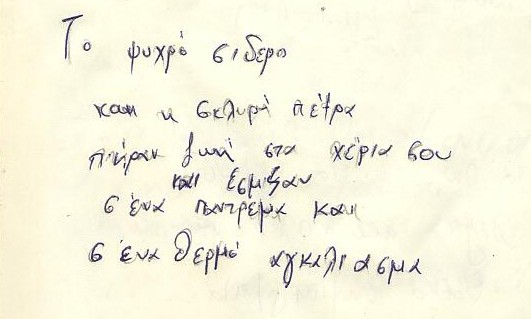 Το ψυχρό σίδερο
και η σκληρή πέτρα
πήραν ζωή στα χέρια σου
και έσμιξαν
σ ένα πάντρεμα και
σ ένα θερμό αγκάλιασμα